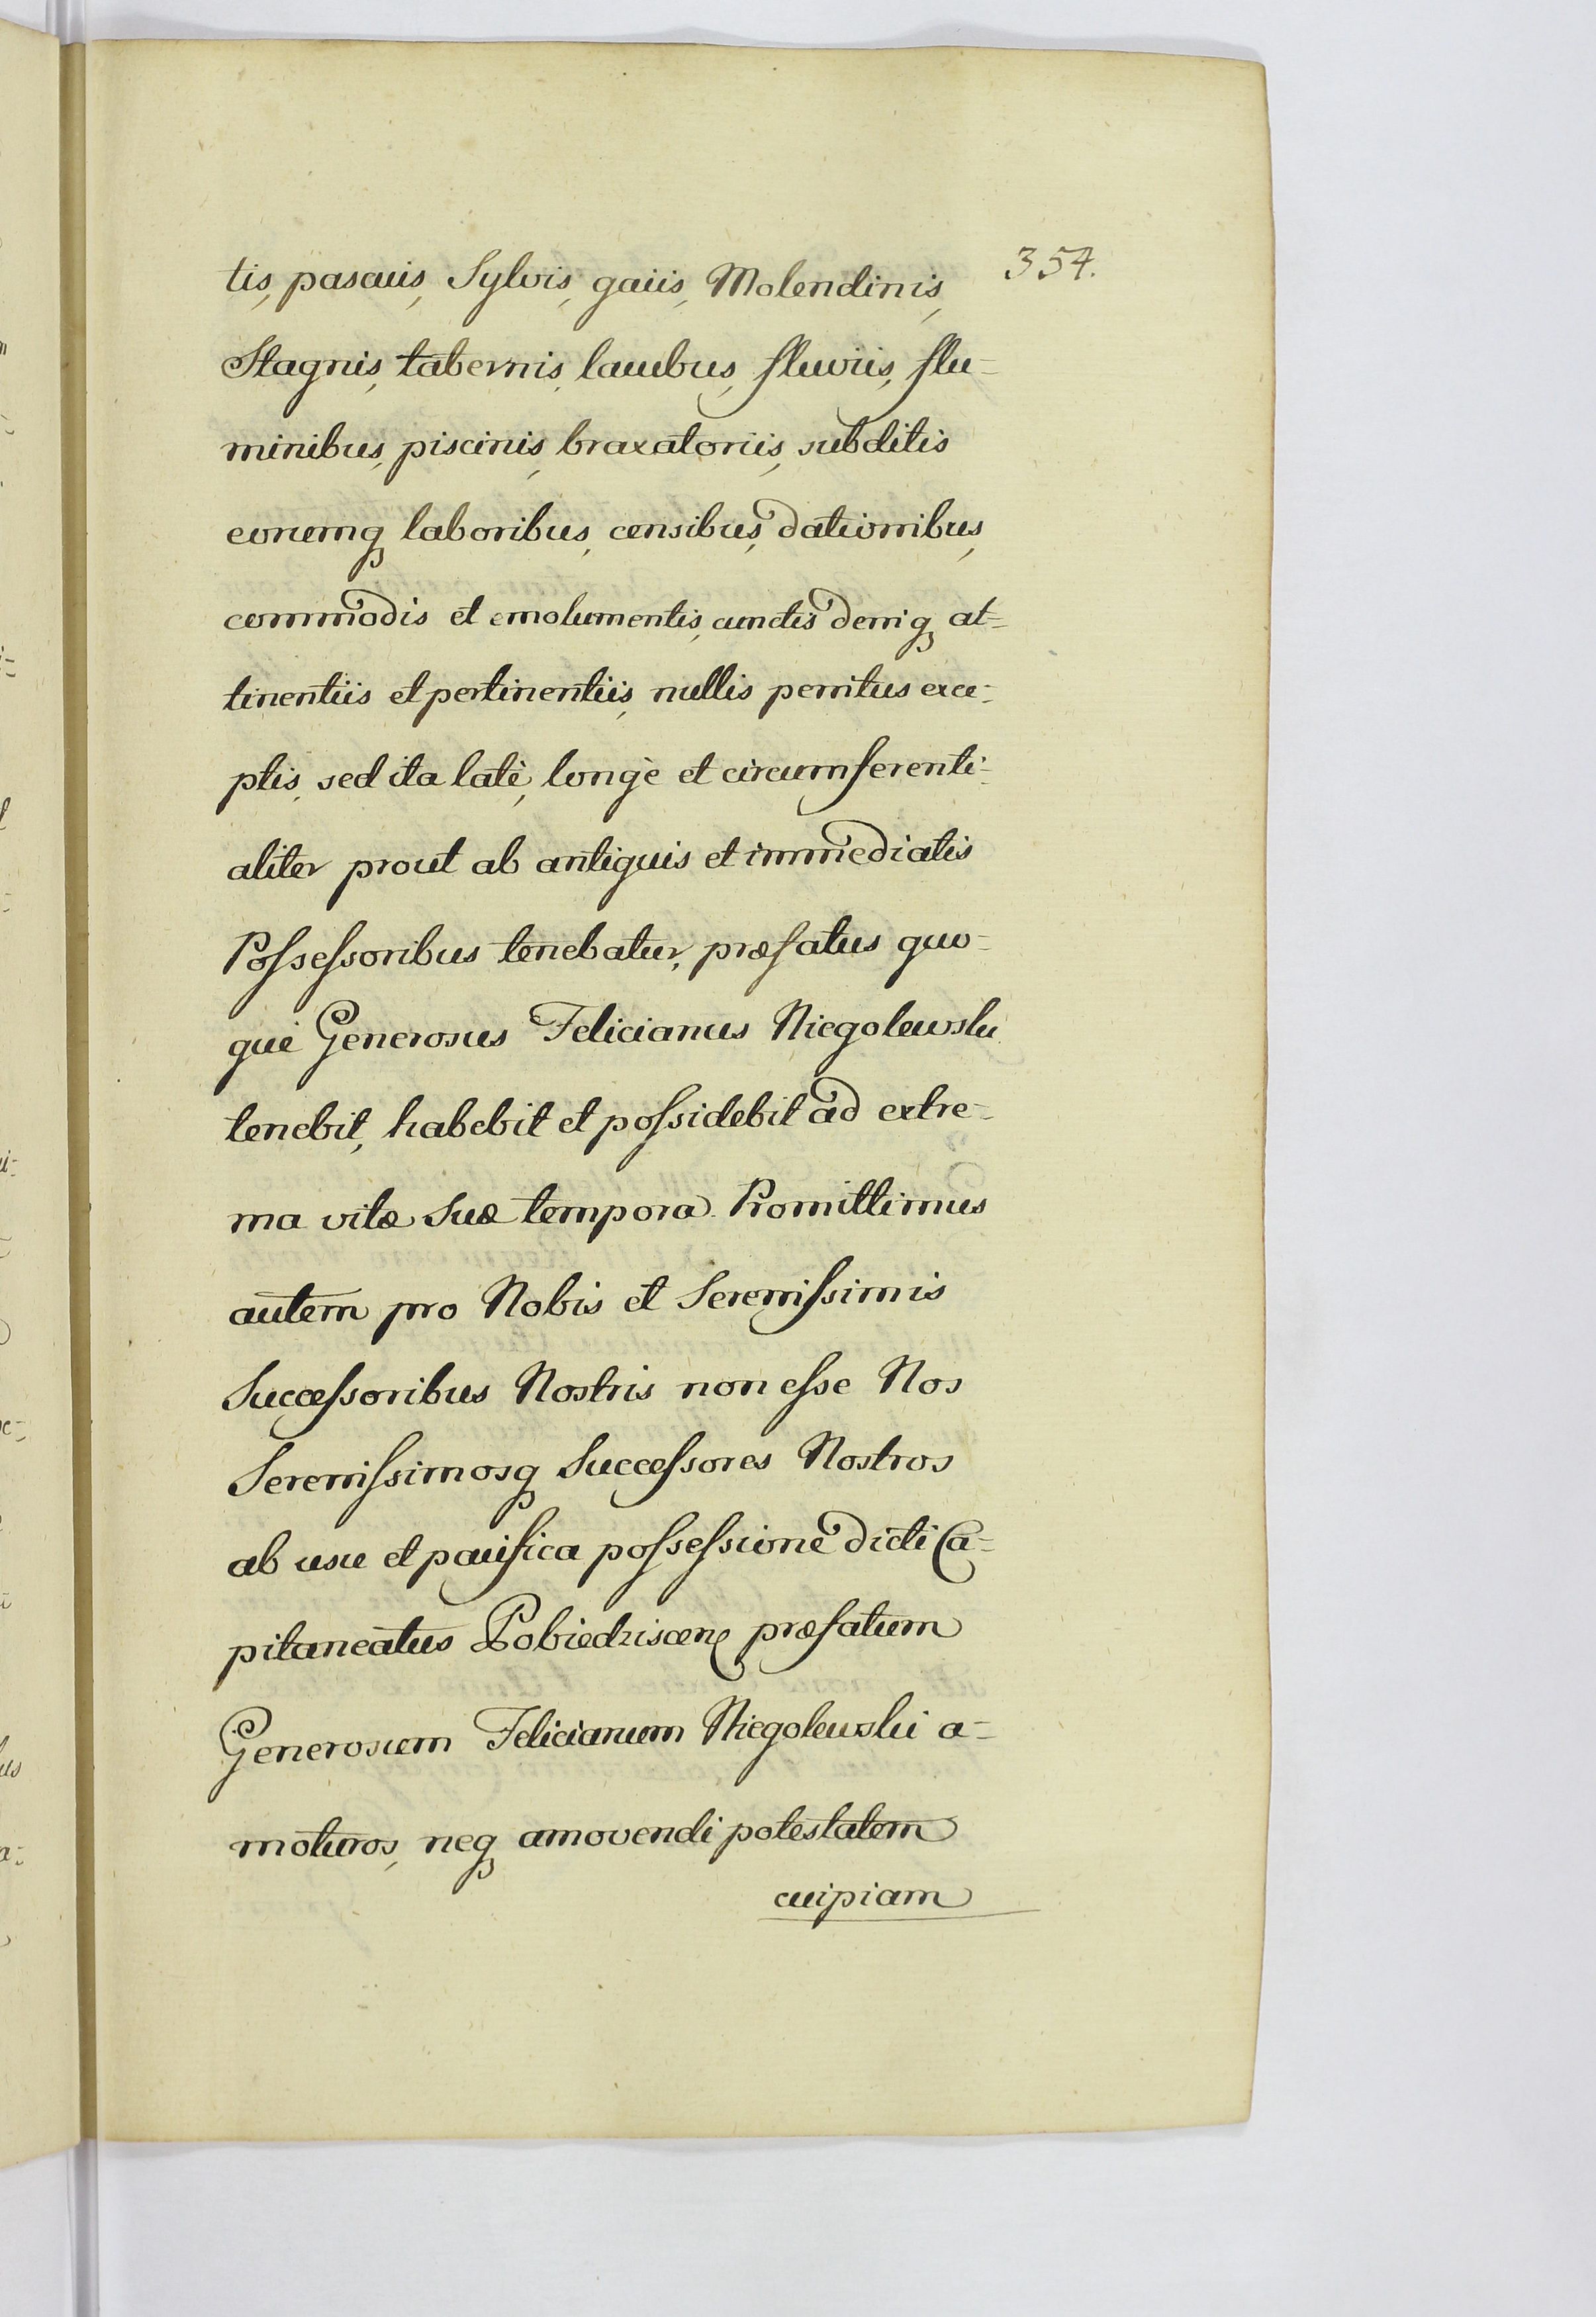 354.
tis, pascuis, Sylvis, gaiis, Molendinis,
Stagnis, tabernis, lacubus, fluviis, flu-
minibus, piscinis, braxatoriis, subditis
eorumq laboribus, censibus, dationibus,
commodis et emolumentis, cunctis deniq at-
tinentiis et pertinentiis, nullis penitus exce-
ptis, sed ita latè, longè et circumferenti-
aliter prout ab antiquis et immediatis
Possessoribus tenebatur, præfatus quo-
què Generosus Felicianus Niegolewski
tenebit, habebit et possidebit ad extre-
ma vitæ suæ tempora. Promittimus
autem pro Nobis et Serenissimis
Successoribus Nostris non esse Nos
Serenissimosq Successores Nostros
ab usu et pacifica possessione dicti Ca-
pitaneatus Pobiedziscen præfatum
Generosum Felicianum Niegolewski a-
moturos, neq amovendi potestatem
cuipiam